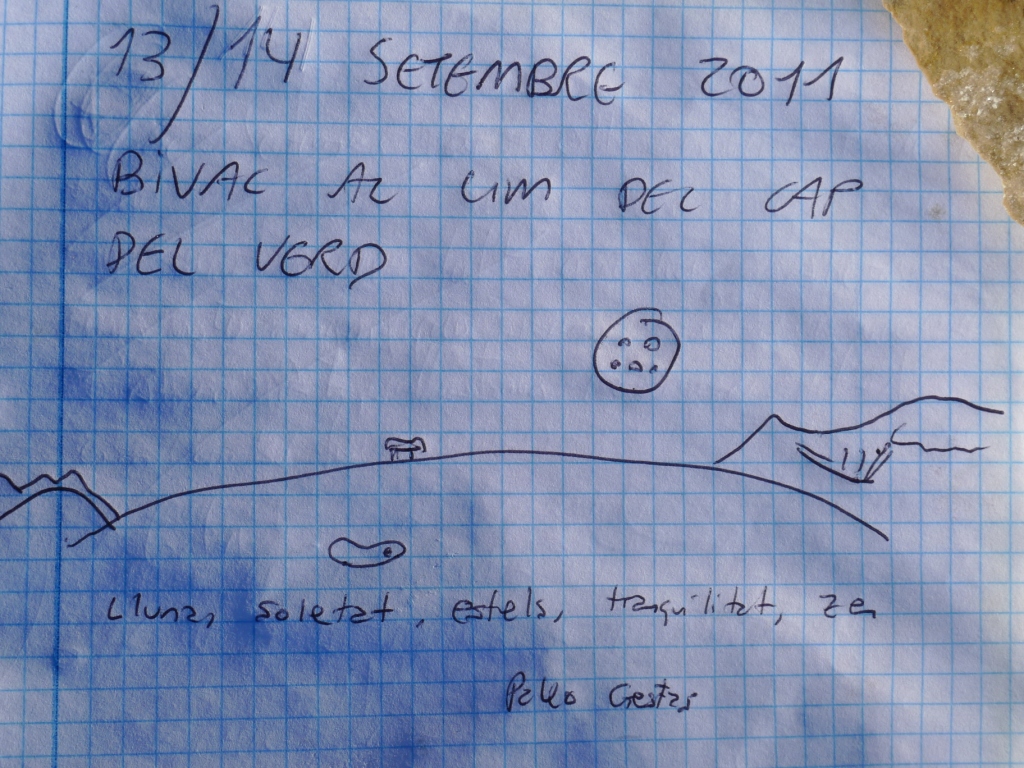 13/14 SETEMBRE 2011
BIVAC AL CIM DEL CAP
DEL VERD
Lluna, soletat, estels, tranquilitat, zen
Gestas